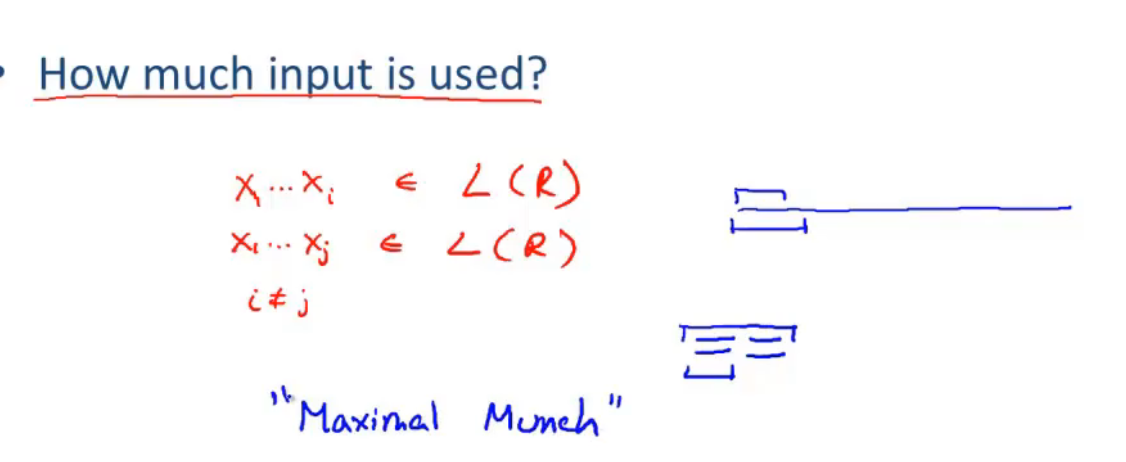 • How much input is used?
x₁...xᵢ ∈ L(R)
x₁...xⱼ ∈ L(R)
i ≠ j
== ==
"Maximal Munch"